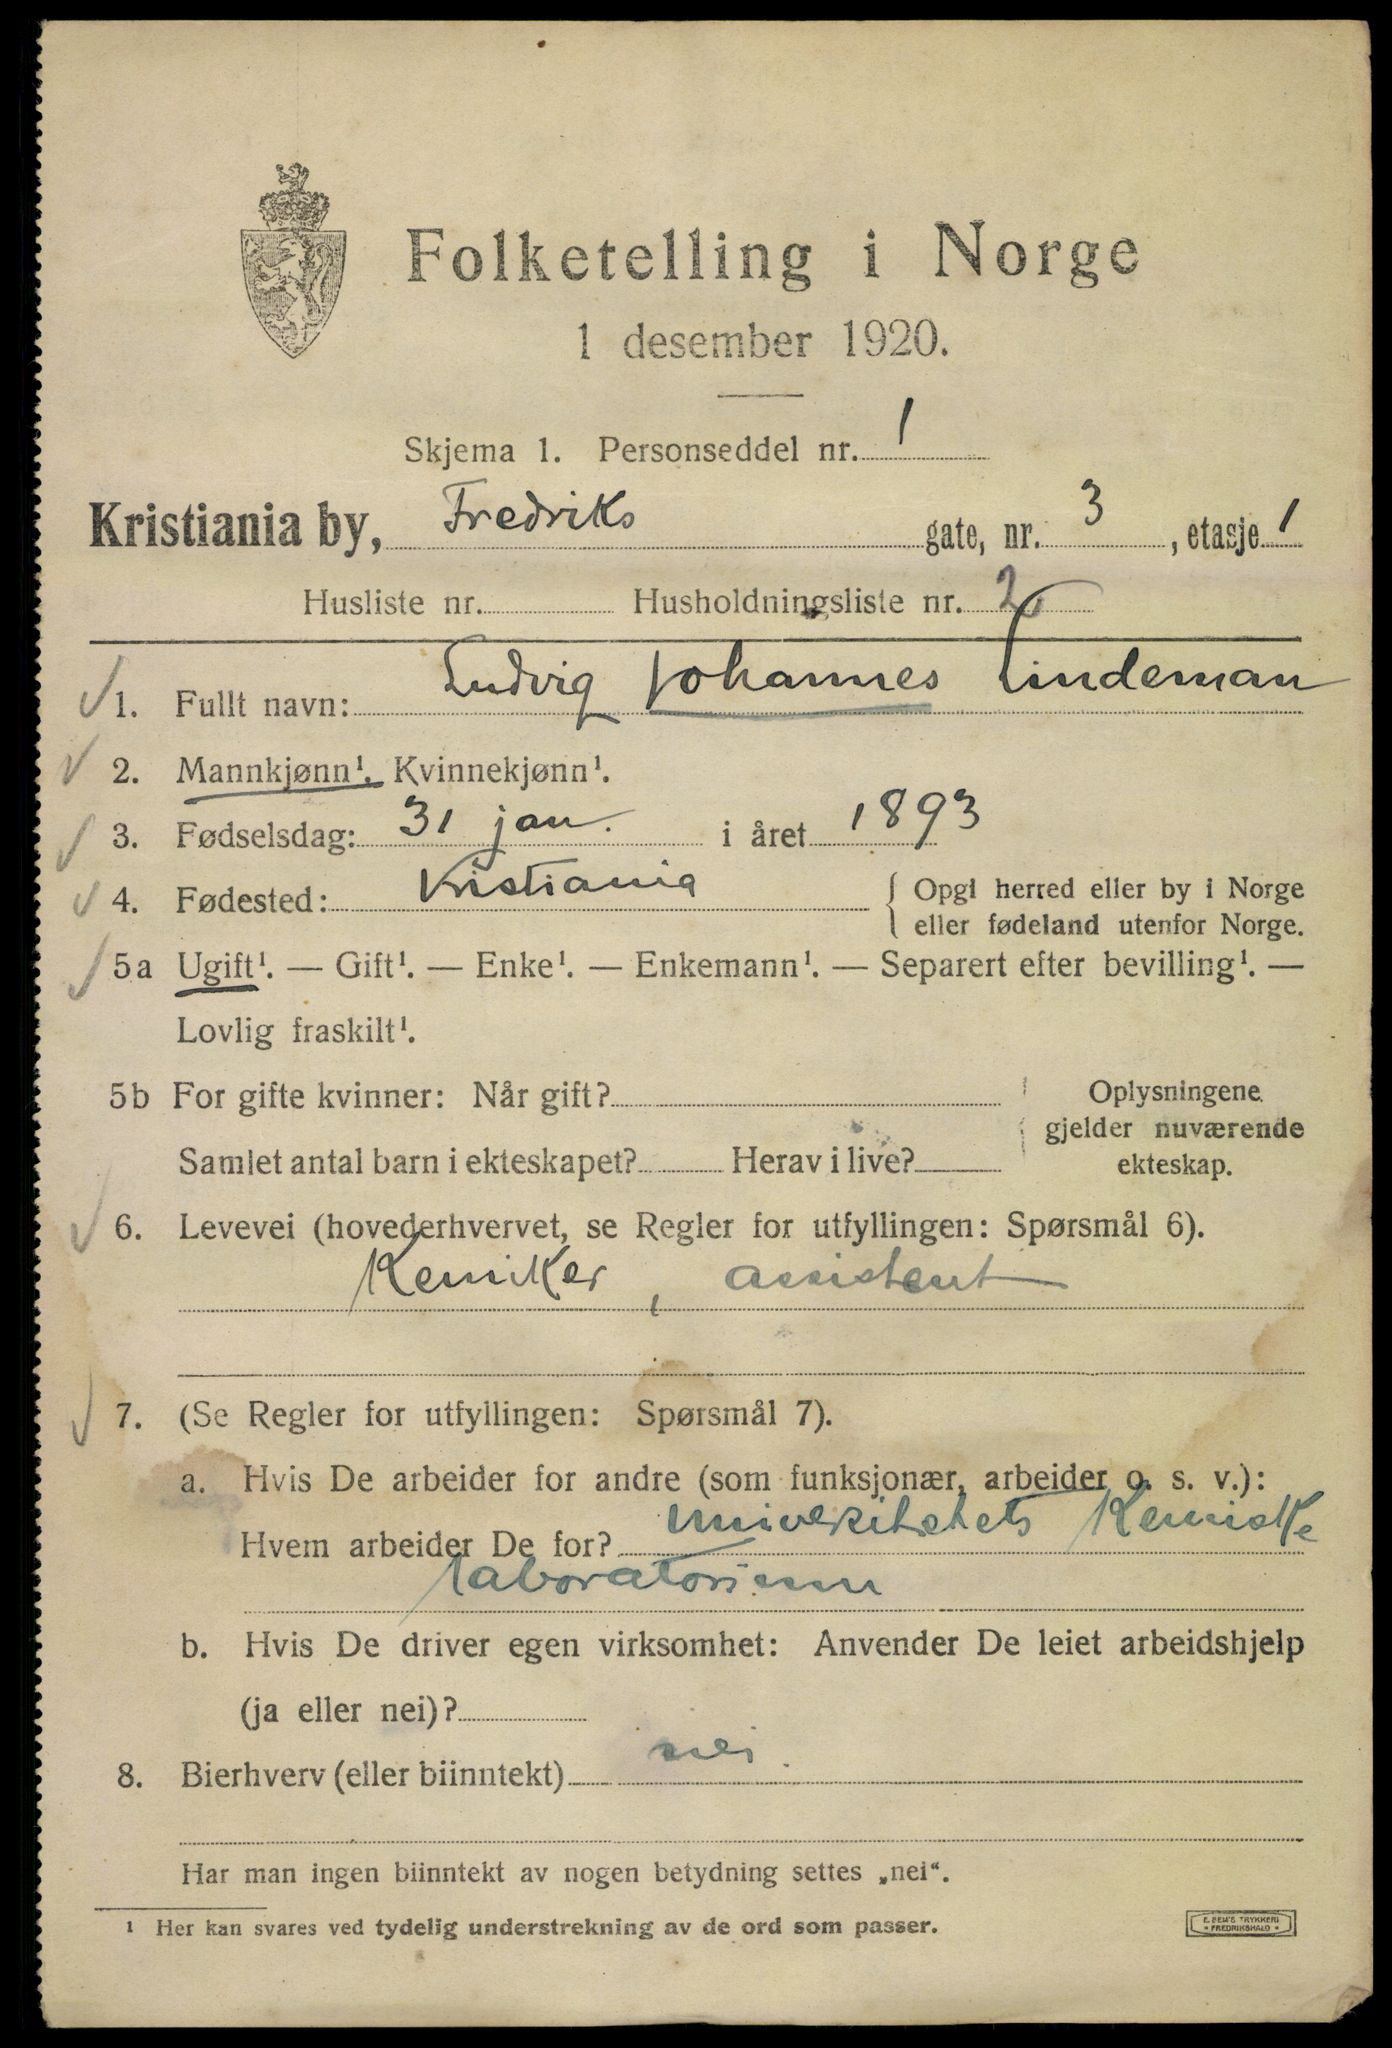 Folketelling i Norge
1 desember 1920.
Skjema 1. Personseddel nr. 1
Kristiania by, Fredriks gate, nr. 3, etasje 1
Husliste nr. Husholdningsliste nr. 2
1. Fullt navn: Ludvig Johannes Lindeman
2. Mannkjønn¹. Kvinnekjønn¹.
3. Fødselsdag: 31 jan. i året 1893
4. Fødested: Kristiania { Opgi herred eller by i Norge
eller fødeland utenfor Norge.
5a Ugift¹. — Gift¹. — Enke¹. — Enkemann¹. — Separert efter bevilling¹. —
Lovlig fraskilt¹.
5b For gifte kvinner: Når gift? Oplysningene
gjelder nuværende
Samlet antal barn i ekteskapet? Herav i live? ekteskap.
6. Levevei (hovederhvervet, se Regler for utfyllingen: Spørsmål 6).
Kemiker, assistent
7. (Se Regler for utfyllingen: Spørsmål 7).
a. Hvis De arbeider for andre (som funksjonær, arbeider o. s. v.):
Hvem arbeider De for? Universitetets Kemiske
laboratorium
b. Hvis De driver egen virksomhet: Anvender De leiet arbeidshjelp
(ja eller nei)?
8. Bierhverv (eller biinntekt) nei.
Har man ingen biinntekt av nogen betydning settes „nei“.
¹ Her kan svares ved tydelig understrekning av de ord som passer.
E. SEM'S TRYKKERI
* FREDRIKSHALD *